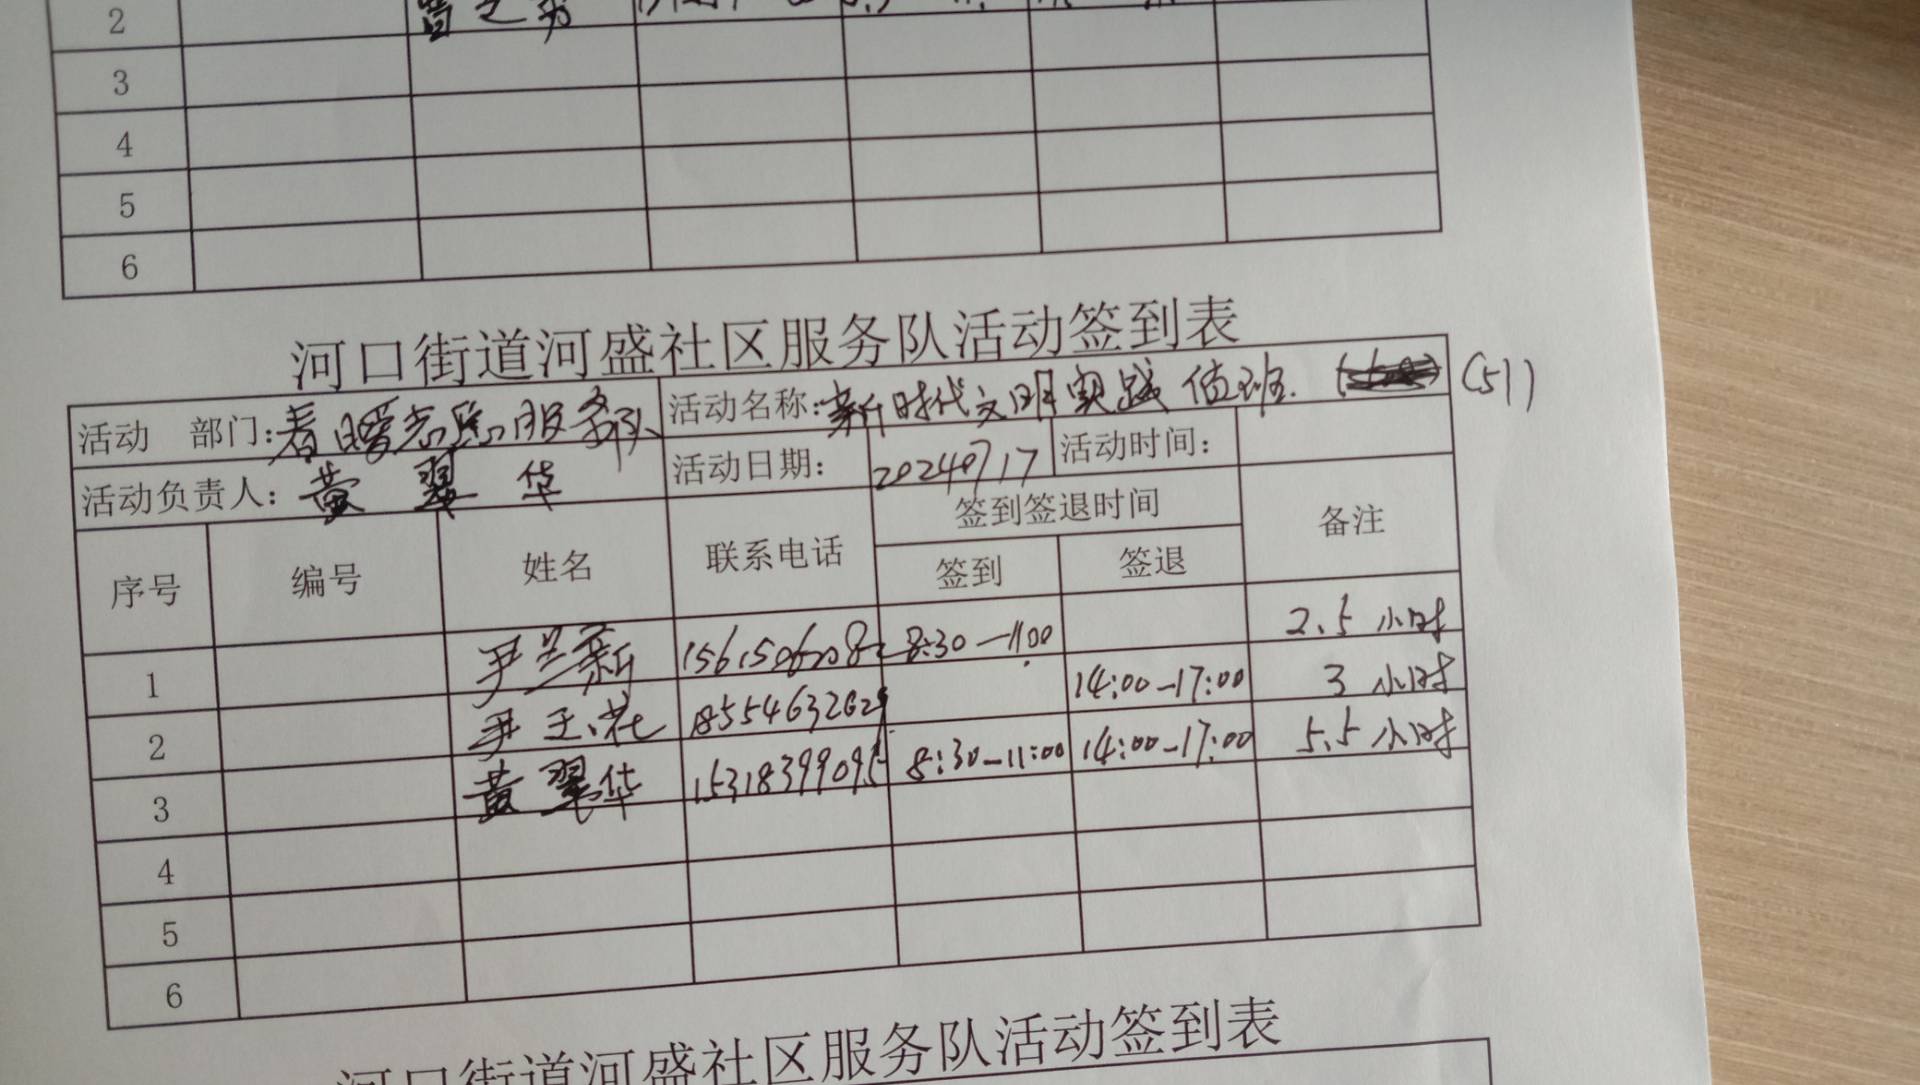 2
3
4
5
6
河口街道河盛社区服务队活动签到表
活动 部门：春暖志愿服务队 活动名称：新时代文明实践值班 (51)
活动负责人：黄翠华 活动日期：20240717 活动时间：
序号 编号 姓名 联系电话 签到签退时间 备注
签到 签退
1 尹兰新 8:30—11:00 2.5小时
2 尹玉花 14:00—17:00 3小时
3 黄翠华 15318399095 8:30—11:00 14:00—17:00 5.5小时
4
5
6
河口街道河盛社区服务队活动签到表